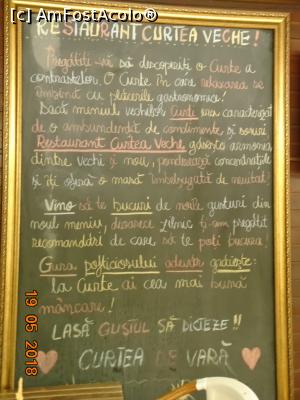 [c] AmFostAcolo®
RESTAURANT CURTEA VECHE!
Pregătiți-vă să descoperiți o Curte a
contrastelor. O Curte în care relaxarea se
îmbină cu plăcerile gastronomice!
Dacă meniul vechilor Curte era caracterizat
de o ambundență de condimente și sosuri
Restaurant Curtea Veche găsește armonia
dintre vechi și nou, ponderează concentrațiile
și îți oferă o masă îmbelșugată de neuitat!
Vino să te bucuri de noile gusturi din
noul meniu, deoarece zilnic ți-am pregătit
recomandări de care să te poți bucura!
Gura pofticiosului adevăr grăiește:
la Curte ai cea mai bună
mâncare!
LASĂ GUSTUL SĂ DICTEZE!!
CURTEA DE VARĂ
19 05 2018